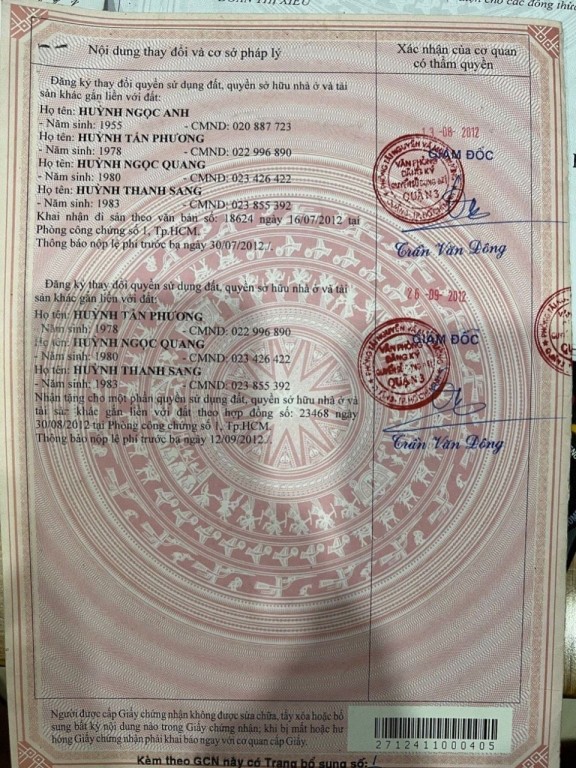 ĐOÀN THỊ XIẾU
Nội dung thay đổi và cơ sở pháp lý
Xác nhận của cơ quan
có thẩm quyền
Đăng ký thay đổi quyền sử dụng đất, quyền sở hữu nhà ở và tài
sản khác gắn liền với đất:
Họ tên: HUỲNH NGỌC ANH
- Năm sinh: 1955 - CMND: 020 887 723
Họ tên: HUỲNH TẤN PHƯƠNG
- Năm sinh: 1978 - CMND: 022 996 890
Họ tên: HUỲNH NGỌC QUANG
- Năm sinh: 1980 - CMND: 023 426 422
Họ tên: HUỲNH THANH SANG
- Năm sinh: 1983 - CMND: 023 855 392
Khai nhận di sản theo văn bản số: 18624 ngày 16/07/2012 tại
Phòng công chứng số 1, Tp.HCM.
Thông báo nộp lệ phí trước bạ ngày 30/07/2012./.
13-08-2012
GIÁM ĐỐC
VĂN PHÒNG
ĐĂNG KÝ
QUYỀN SỬ DỤNG ĐẤT
QUẬN 3
Trần Văn Đông
Đăng ký thay đổi quyền sử dụng đất, quyền sở hữu nhà ở và tài
sản khác gắn liền với đất:
Họ tên: HUỲNH TẤN PHƯƠNG
- Năm sinh: 1978 - CMND: 022 996 890
Họ tên: HUỲNH NGỌC QUANG
- Năm sinh: 1980 - CMND: 023 426 422
Họ tên: HUỲNH THANH SANG
- Năm sinh: 1983 - CMND: 023 855 392
Nhận tặng cho một phần quyền sử dụng đất, quyền sở hữu nhà ở và
tài sản khác gắn liền với đất theo hợp đồng số: 23468 ngày
30/08/2012 tại Phòng công chứng số 1, Tp.HCM.
Thông báo nộp lệ phí trước bạ ngày 12/09/2012./.
26-09-2012
GIÁM ĐỐC
VĂN PHÒNG
ĐĂNG KÝ
QUẬN 3
Trần Văn Đông
Người được cấp Giấy chứng nhận không được sửa chữa, tẩy xóa hoặc bổ
sung bất kỳ nội dung nào trong Giấy chứng nhận; khi bị mất hoặc hư
hỏng Giấy chứng nhận phải khai báo ngay với cơ quan cấp Giấy.
2712411000405
Kèm theo GCN này có Trang bổ sung số: 1